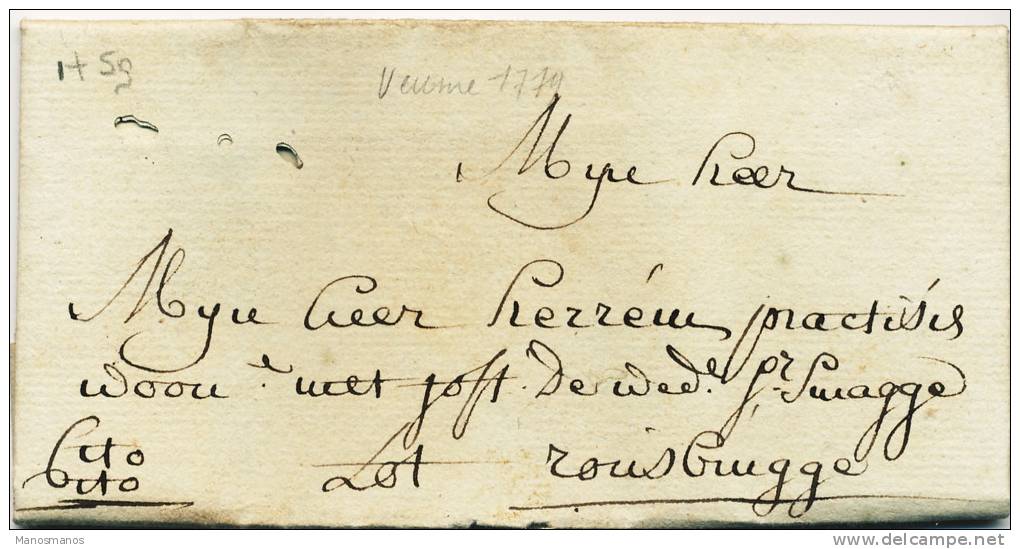 1+ 59
Veurne 1779
Myn heer
Myn heer herrein practisis
woon.e met joff. De wed.e pr Smagge
Cito
Cito
Tot rousbrugge
Manosmanos
www.delcampe.net